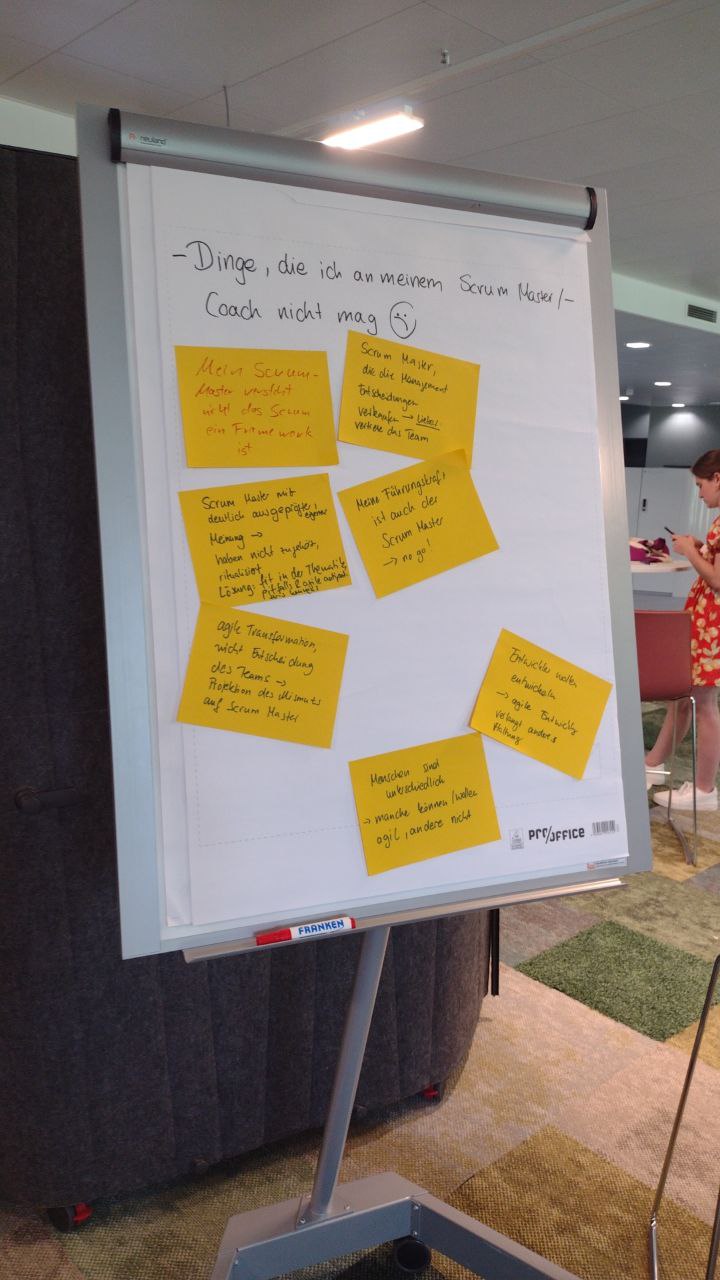 neuland
- Dinge, die ich an meinem Scrum Master/-
Coach nicht mag
Mein Scrum-
Master versteht
nicht das Scrum
ein Framework
ist
Scrum Master,
die die Management
Entscheidungen
verkaufen → lieber
vertrete das Team
Scrum Master mit
deutlich ausgeprägter, eigener
Meinung →
haben nicht zugehört,
ritualisiert
Lösung: fit in der Thematik
Meine Führungskraft,
ist auch der
Scrum Master
→ no go!
agile Transformation,
nicht Entscheidung
des Teams →
Projektion des Unmuts
auf Scrum Master
Entwickler wollen
entwickeln
→ agile Entwickl
verlangt andere
Haltung
Menschen sind
unterschiedlich
→ manche können/wollen
agil, andere nicht
PRO/OFFICE
FRANKEN